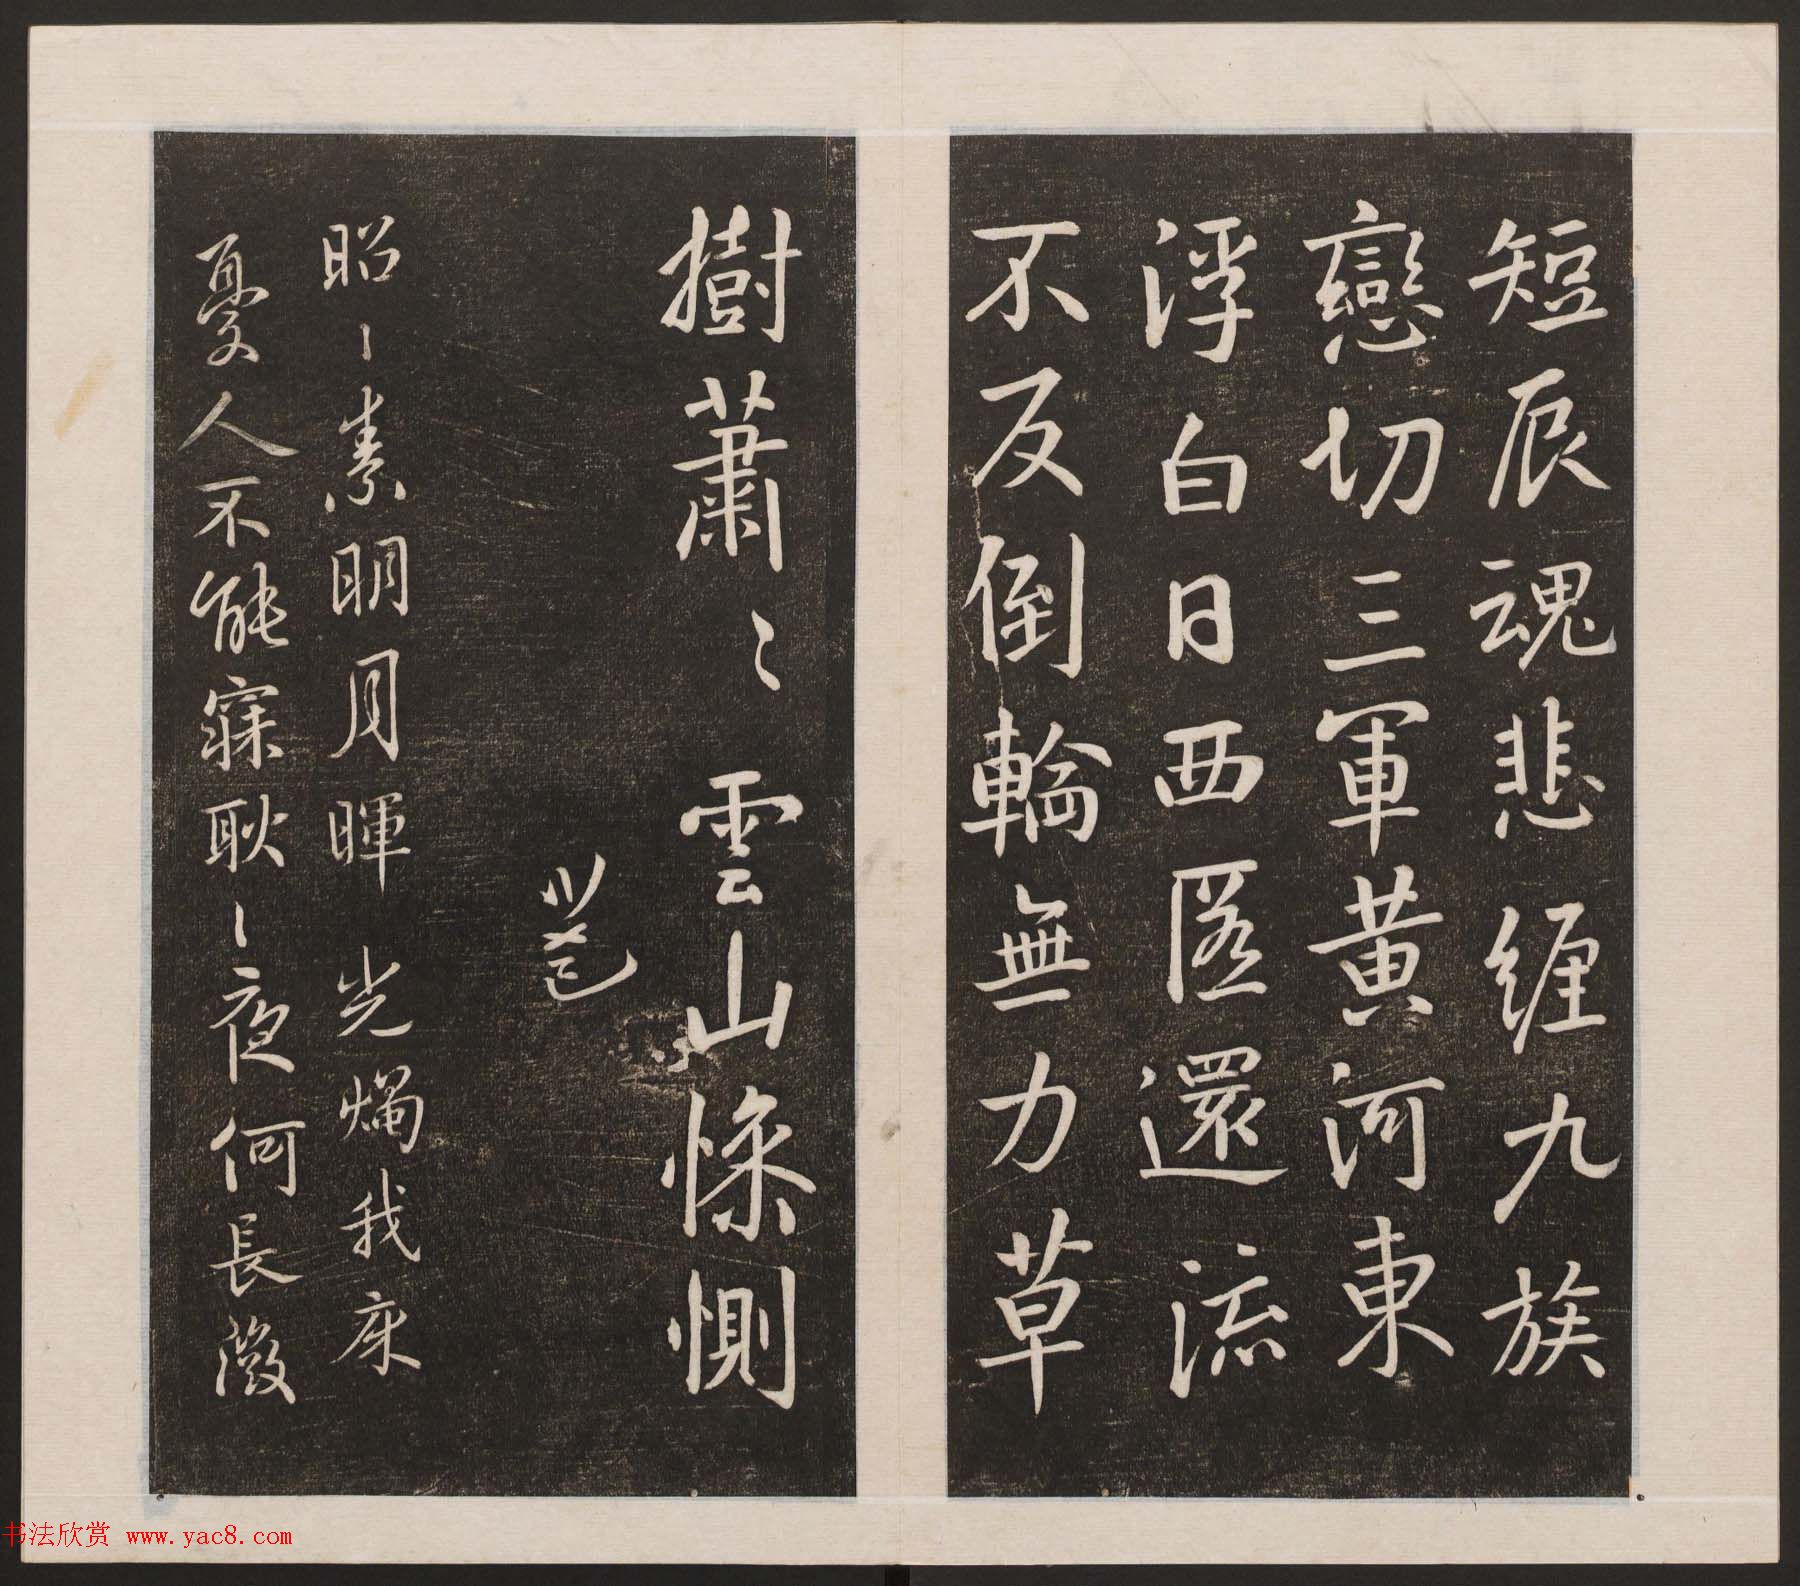 短辰魂悲纏九族
戀切三軍黄河東
浮白日西匿還流
不反倒輪無力草
樹蕭〻雲山慘惻
昭〻素明月暉光燭我床
憂人不能寐耿〻夜何長微
书法欣赏 www.yac8.com